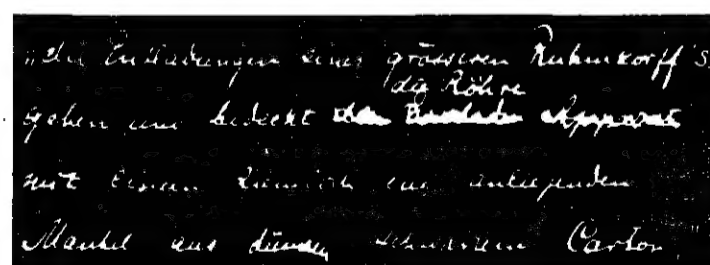 „die Entladungen eines grösseren Ruhmkorff's
die Röhre
gehen und bedeckt den Apparat
mit einem ziemlich eng anliegenden
Mantel aus dünnem schwarzem Carton